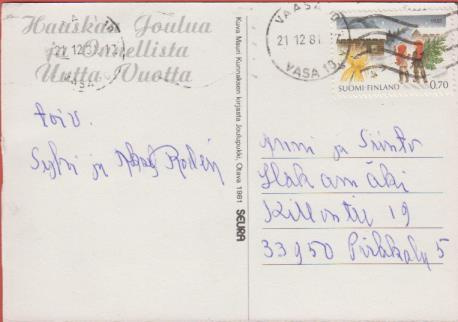 Hauskaa Joulua
ja Onnellista
Uutta Vuotta
VAASA
21 12 81
VASA
toiv.
Sylvi ja
Kuva Mauri Kunnaksen kirjasta Joulupukki, Otava 1981 SEURA
VAASA
21 12 81
VASA
SUOMI-FINLAND 0,70
Anni ja
Hakamäki
19
33950 Pirkkala 5